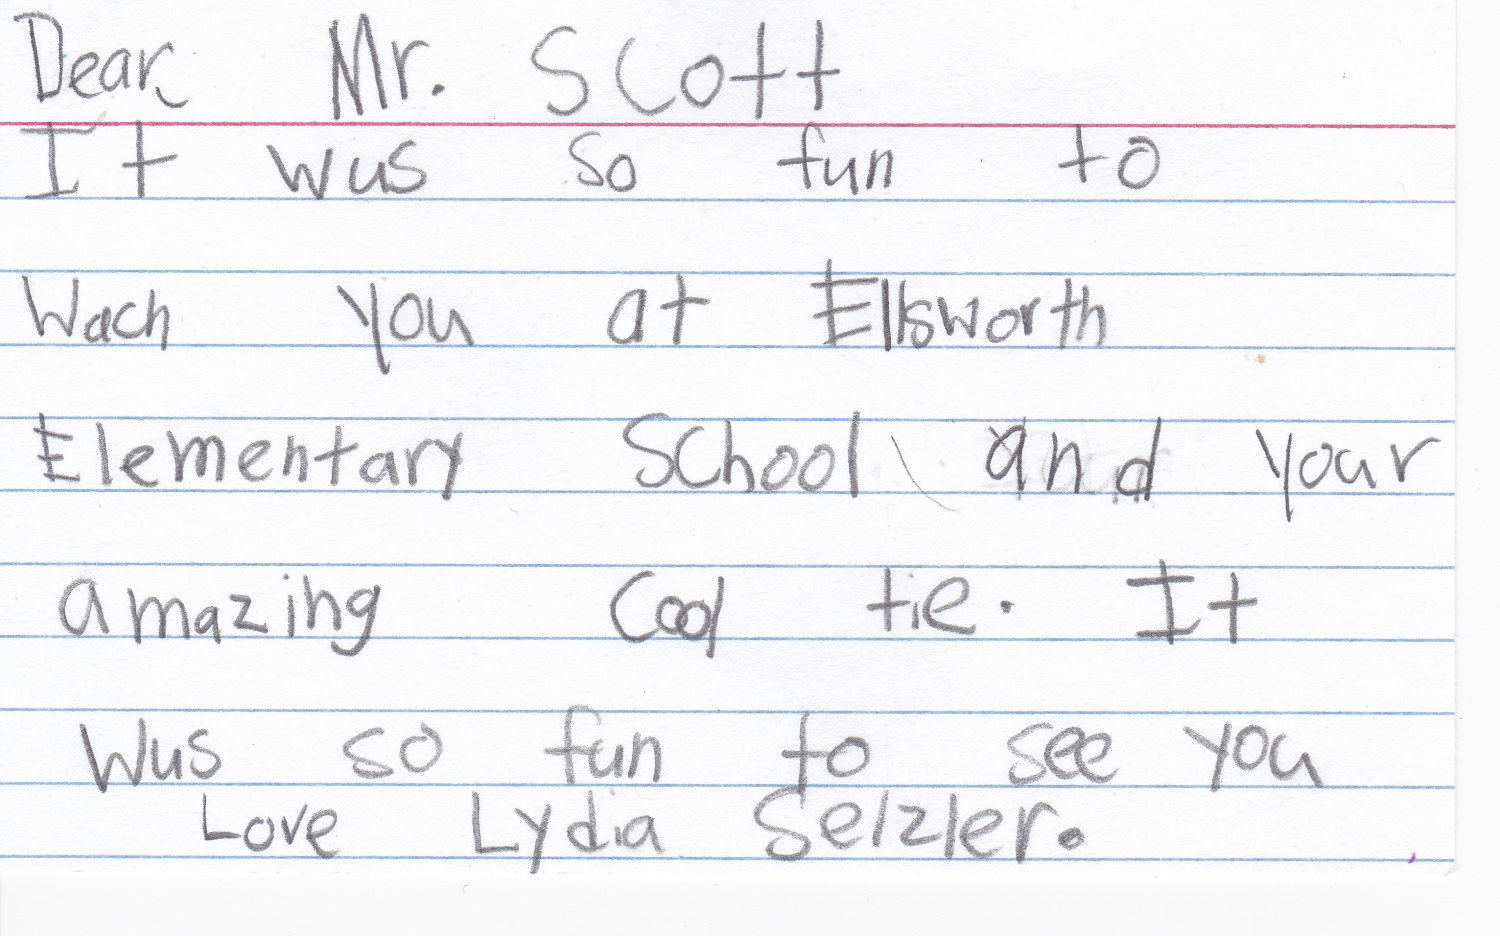 Dear Mr. Scott
It wus so fun to
Wach you at Ellsworth
Elementary School and your
amazing Cool tie. It
Wus so fun to see you
Love Lydia Selzler.